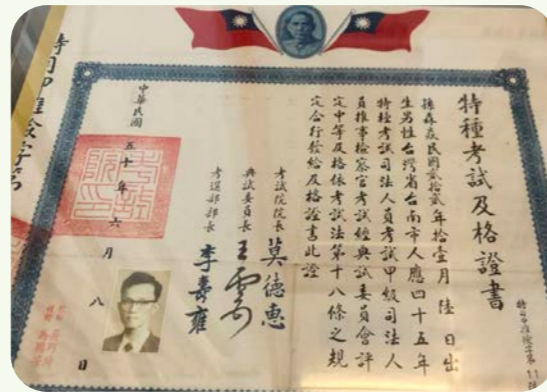 特種考試及格證書
孫森焱民國貳拾貳年拾壹月陸日出
生男性台灣省台南市人應四十五年
特種考試司法人員考試甲級司法人
員推事檢察官考試經典試委員會評
定中等及格依考試法第十八條之規
定合行發給及格證書此證
考試院院長 莫德惠
典試委員長
考選部部長 李壽雍
中華民國五十年六月八日
考試院印